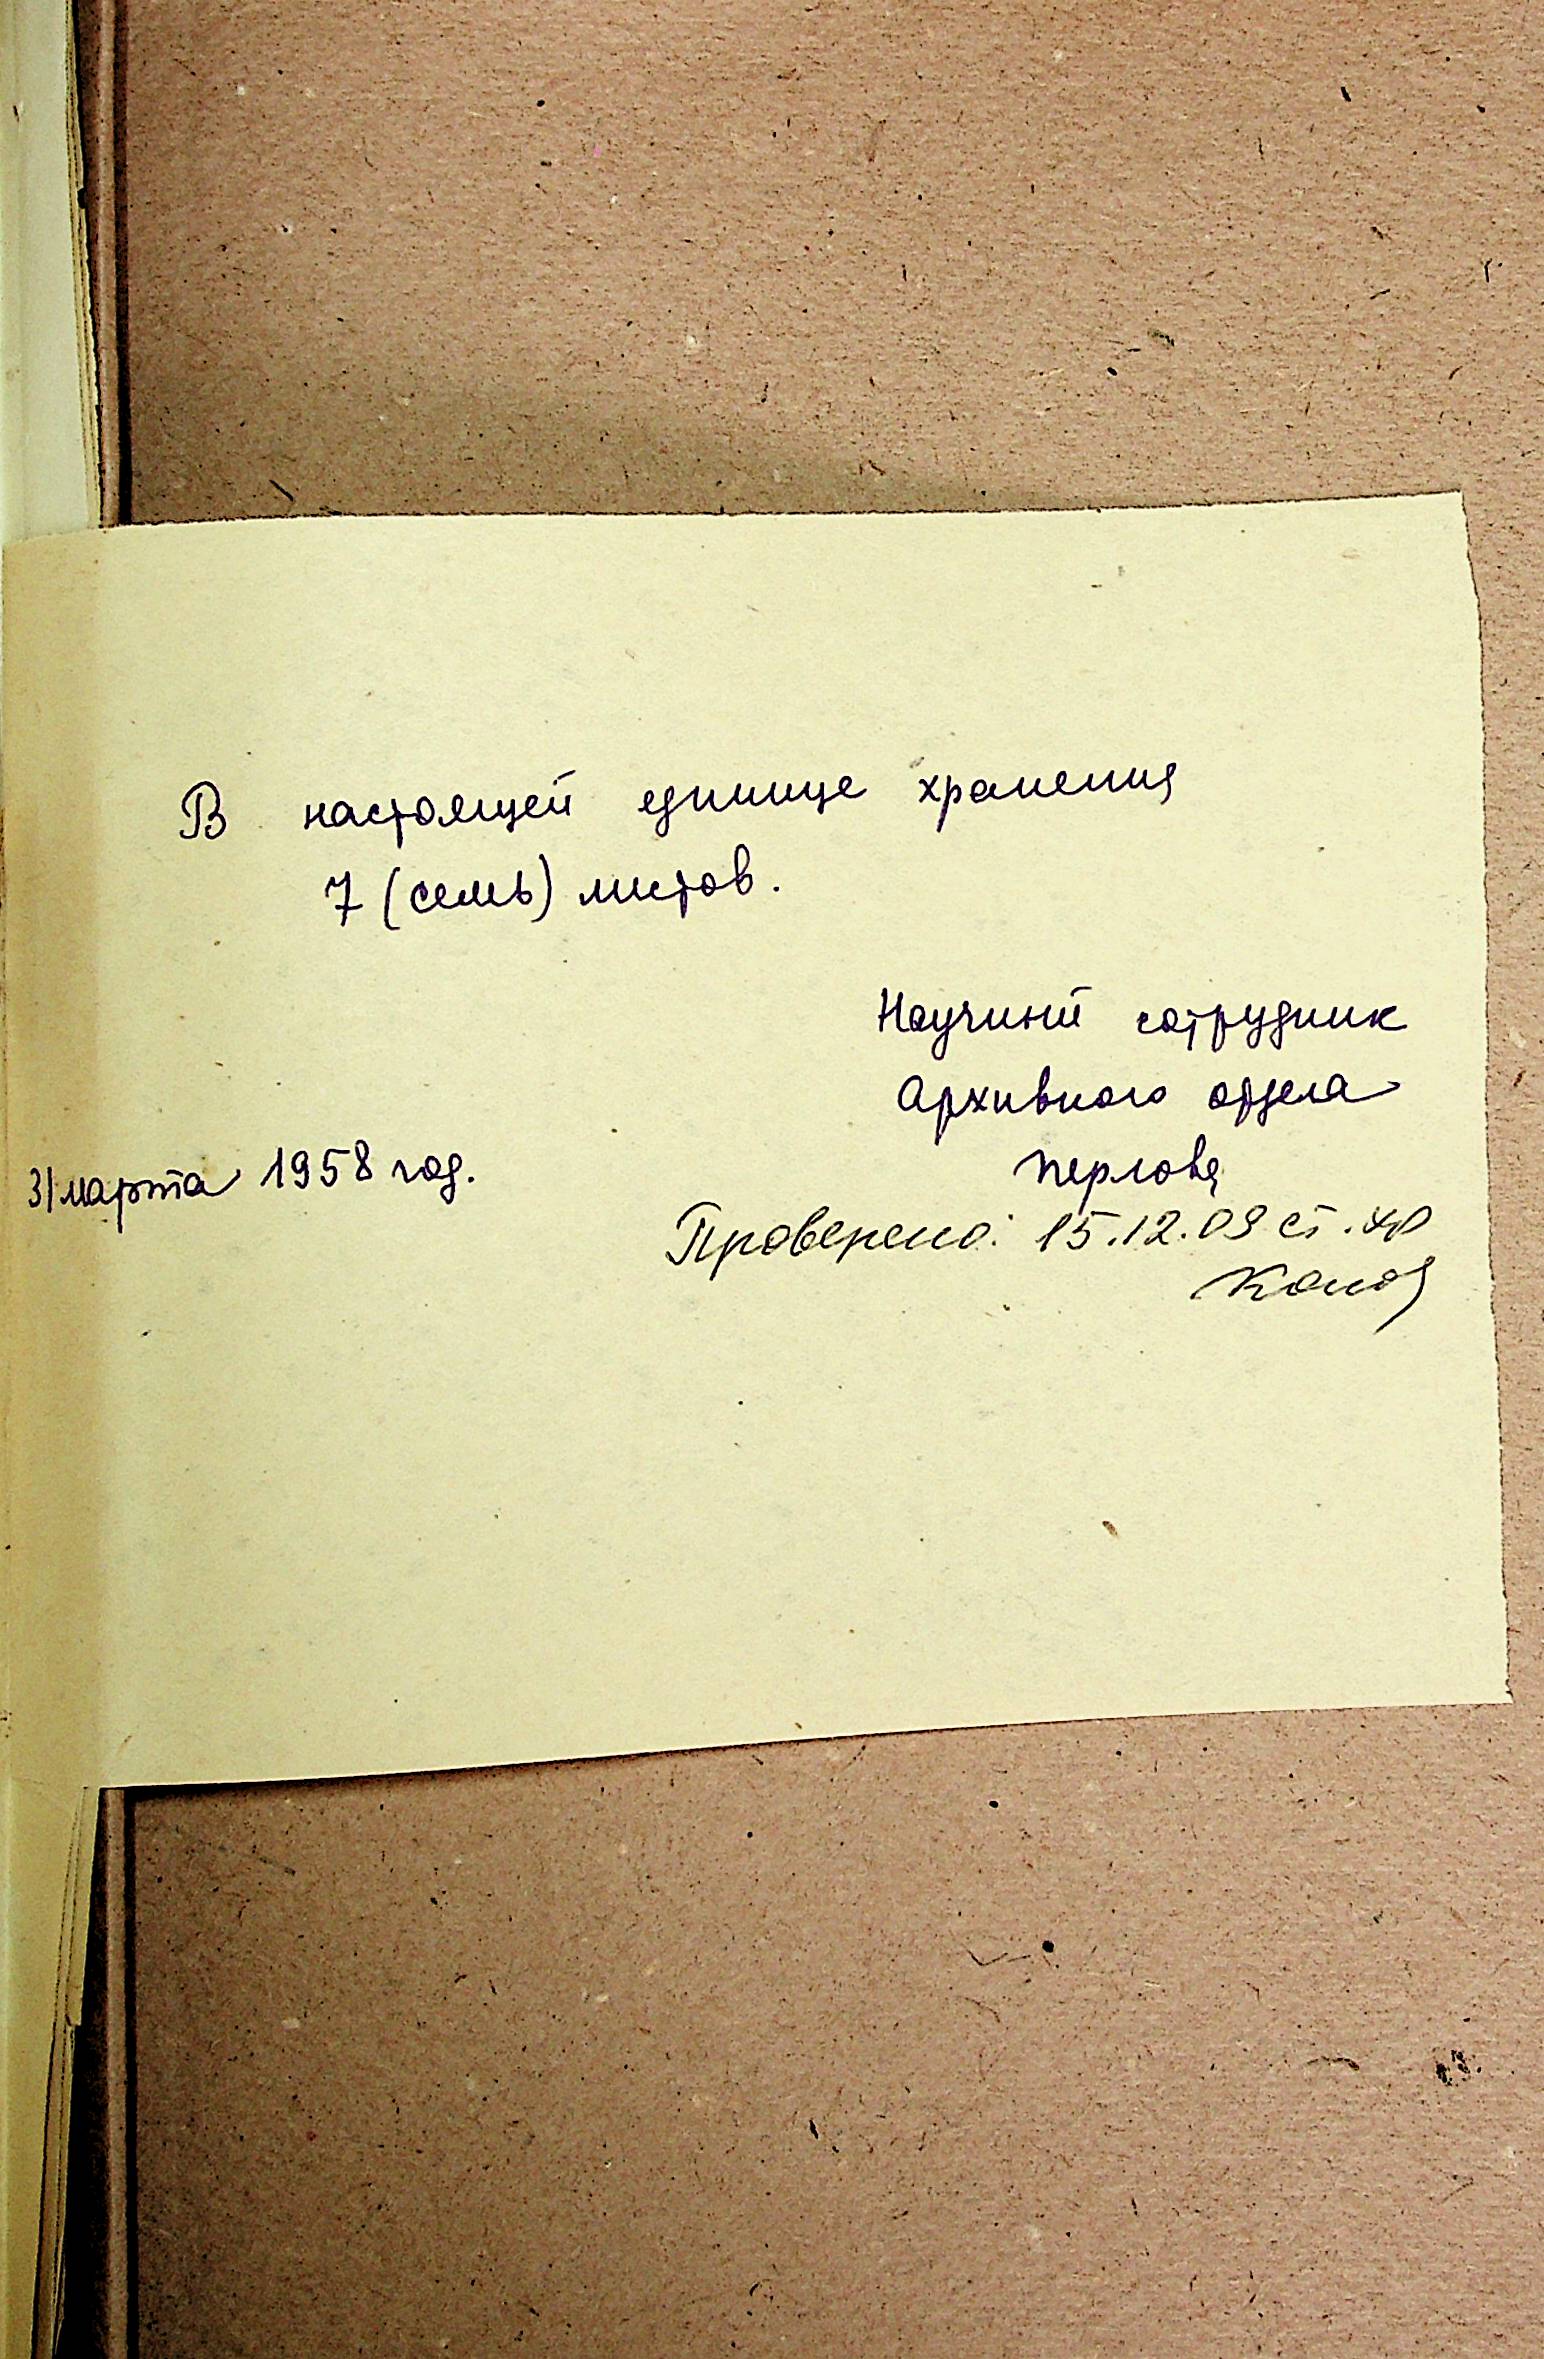 В настоящей единице хранения
7 (семь) листов.
Научный сотрудник
Архивного отдела
31 марта 1958 год.
Перлова
Проверено: 15.12.09 ст. хр